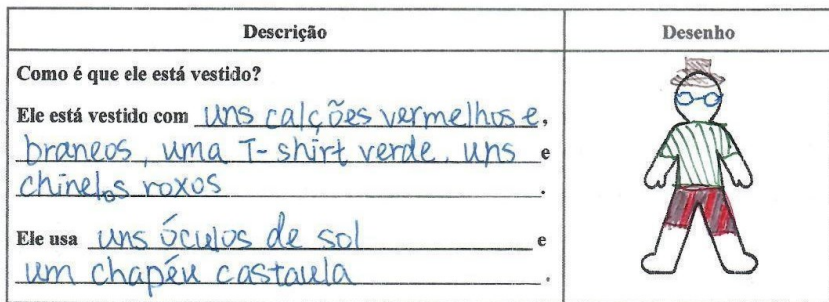 Descrição
Desenho
Como é que ele está vestido?
Ele está vestido com uns calções vermelhos e,
braneos, uma T-shirt verde, uns e
chinelos roxos.
Ele usa uns óculos de sol e
um chapéu castaula.